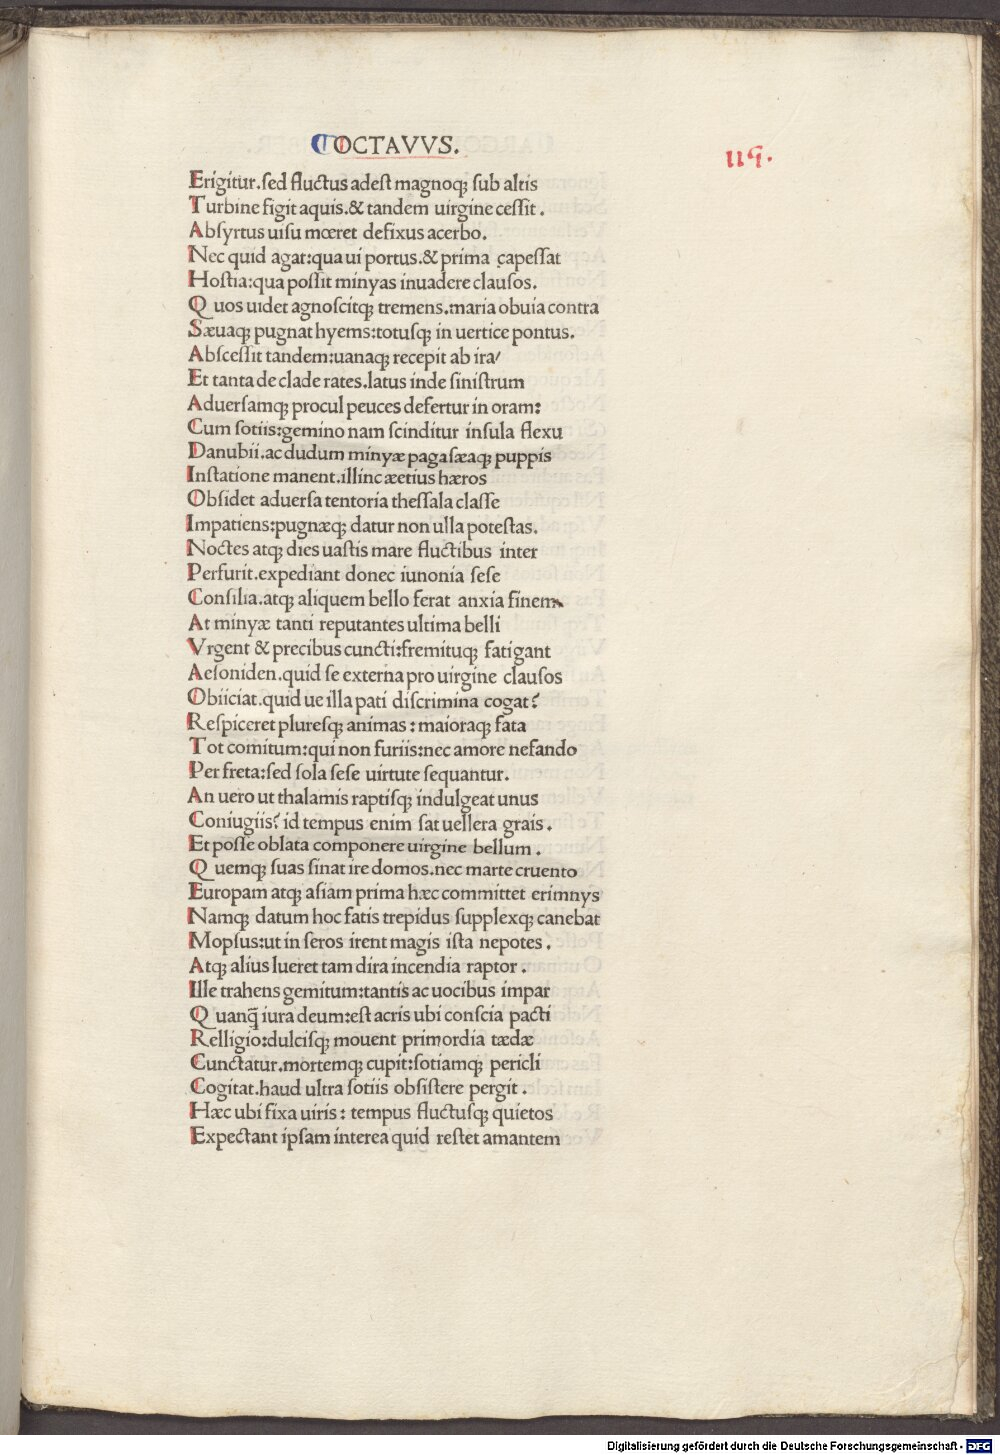 OCTAVVS.
119.
Erigitur.sed fluctus adest magnoqꝫ sub altis
Turbine figit aquis.& tandem uirgine cessit.
Absyrtus uisu mœret defixus acerbo.
Nec quid agat:qua ui portus.& prima capessat
Hostia:qua possit minyas inuadere clausos.
Quos uidet agnoscitqꝫ tremens.maria obuia contra
Sæuaqꝫ pugnat hyems:totusqꝫ in uertice pontus.
Abscessit tandem:uanaqꝫ recepit ab ira/
Et tanta de clade rates.latus inde sinistrum
Aduersamqꝫ procul peuces defertur in oram:
Cum sotiis:gemino nam scinditur insula flexu
Danubii.ac dudum minyæ pagasæaqꝫ puppis
Instatione manent.illinc æetius hæros
Obsidet aduersa tentoria thessala classe
Impatiens:pugnæqꝫ datur non ulla potestas.
Noctes atqꝫ dies uastis mare fluctibus inter
Perfurit.expediant donec iunonia sese
Consilia.atqꝫ aliquem bello ferat anxia finem
At minyæ tanti reputantes ultima belli
Vrgent & precibus cuncti:fremituqꝫ fatigant
Aesoniden.quid se externa pro uirgine clausos
Obiiciat.quid ue illa pati discrimina cogat?
Respiceret pluresqꝫ animas: maioraqꝫ fata
Tot comitum:qui non furiis:nec amore nefando
Per freta:sed sola sese uirtute sequantur.
An uero ut thalamis raptisqꝫ indulgeat unus
Coniugiis? id tempus enim sat uellera grais.
Et posse oblata componere uirgine bellum.
Quemqꝫ suas sinat ire domos.nec marte cruento
Europam atqꝫ asiam prima hæc committet erimnys
Namqꝫ datum hoc fatis trepidus supplexqꝫ canebat
Mopsus:ut in seros irent magis ista nepotes.
Atqꝫ alius lueret tam dira incendia raptor.
Ille trahens gemitum:tantis ac uocibus impar
Quanq̃ iura deum:est acris ubi conscia pacti
Relligio:dulcisqꝫ mouent primordia tædæ
Cunctatur.mortemqꝫ cupit:sotiamqꝫ pericli
Cogitat.haud ultra sotiis obsistere pergit.
Hæc ubi fixa uiris: tempus fluctusqꝫ quietos
Expectant ipsam interea quid restet amantem
Digitalisierung gefördert durch die Deutsche Forschungsgemeinschaft - DFG